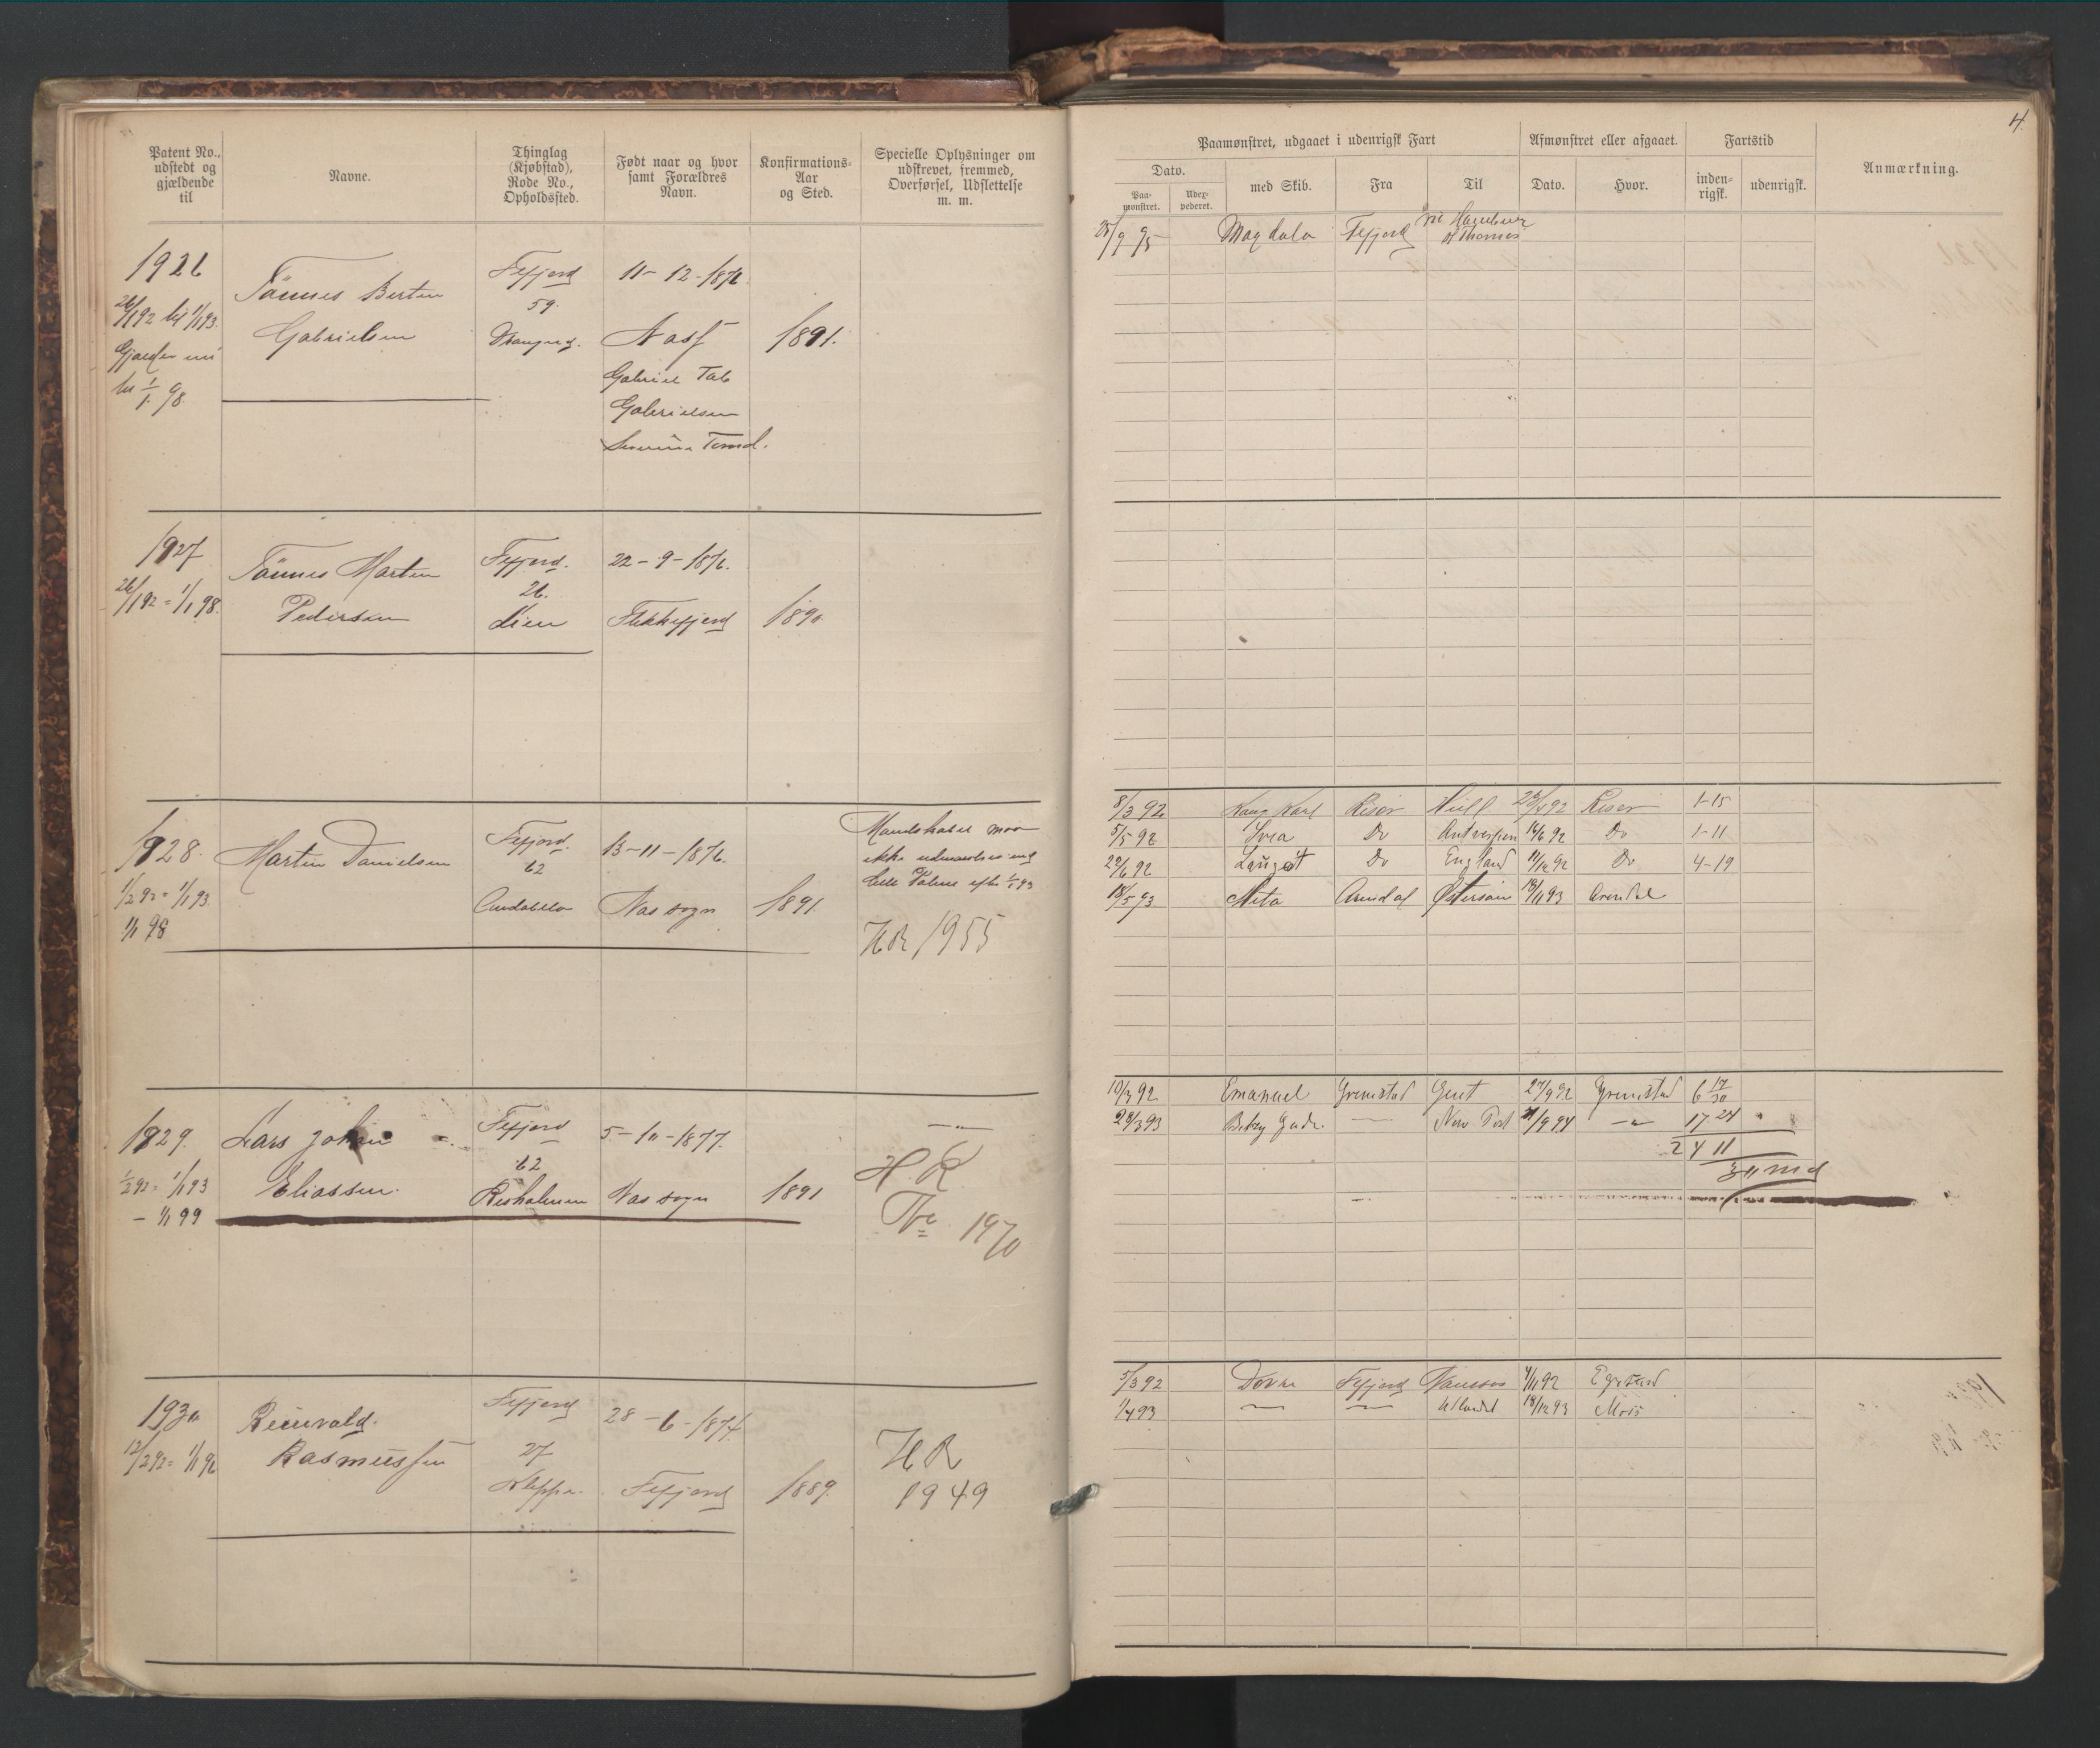 Patent No.,
udstedt og
gjældende
til
Navne.
Thinglag
(Kjøbstad),
Rode No.,
Opholdssted.
Født naar og hvor
samt Forældres
Navn.
Konfirmations-
Aar
og Sted.
Specielle Oplysninger om
udskrevet, fremmed,
Overførsel, Udslettelse
m. m.
1926
26/1 92 til 1/1 93.
til 1/1 98
Tønnes Bertin
Gabrielsen
Fefjord
59.
11-12-1876
Næs
Gabriel Tob
Gabrielsen
1891.
1927
26/1 92 = 1/1 98.
Tønnes Martin
Pedersen
Fefjord.
26.
Lien
22-9-1876.
Flekkefjord
1890
1928.
1/2 92 = 1/1 93.
1/1 98
Martin Danielsen
Fefjord.
62
13-11-1876.
Næs sogn
1891
Mandskabet maa
ikke
HR 1955
1929.
1/2 92 = 1/1 93
- 1/1 99
Lars Johan
Eliassen.
Fefjord
62
Risholmen
5-10-1877.
Næs sogn
1891
H. R.
No 1970
1930
12/2 92 = 1/1 96
Reinvald
Rasmussen
Fefjord
27
Kleppe.
28-6-1874
Fefjord
1889.
HR
1949
4.
Paamønstret, udgaaet i udenrigsk Fart
Afmønstret eller afgaaet.
Fartstid
Anmærkning.
Dato.
Paa-
mønstret.
Udex-
pederet.
med Skib.
Fra
Til
Dato.
Hvor.
inden-
rigsk.
udenrigsk.
25/9 95 Magdala Fefjord via Hamburg
St Thomas
8/3 92 Kong Karl Risør Hull Risør 1-15
5/5 92 Svea Do Antverpen 16/6 92 Do 1-11
22/6 92 Do England 11/12 92 Do 4-19
18/5 93 Meta Arendal 18/11 93 Arendal
10/3 92 Emanuel Grimstad Gent 27/9 92 Grimstad 6 17/30
28/3 93 New Port /9 94 17 24 "
24 11
5/3 92 Dovre Fefjord Namsos 4/11 92 Egersund
1/4 93 Udlandet 18/12 93 Moss